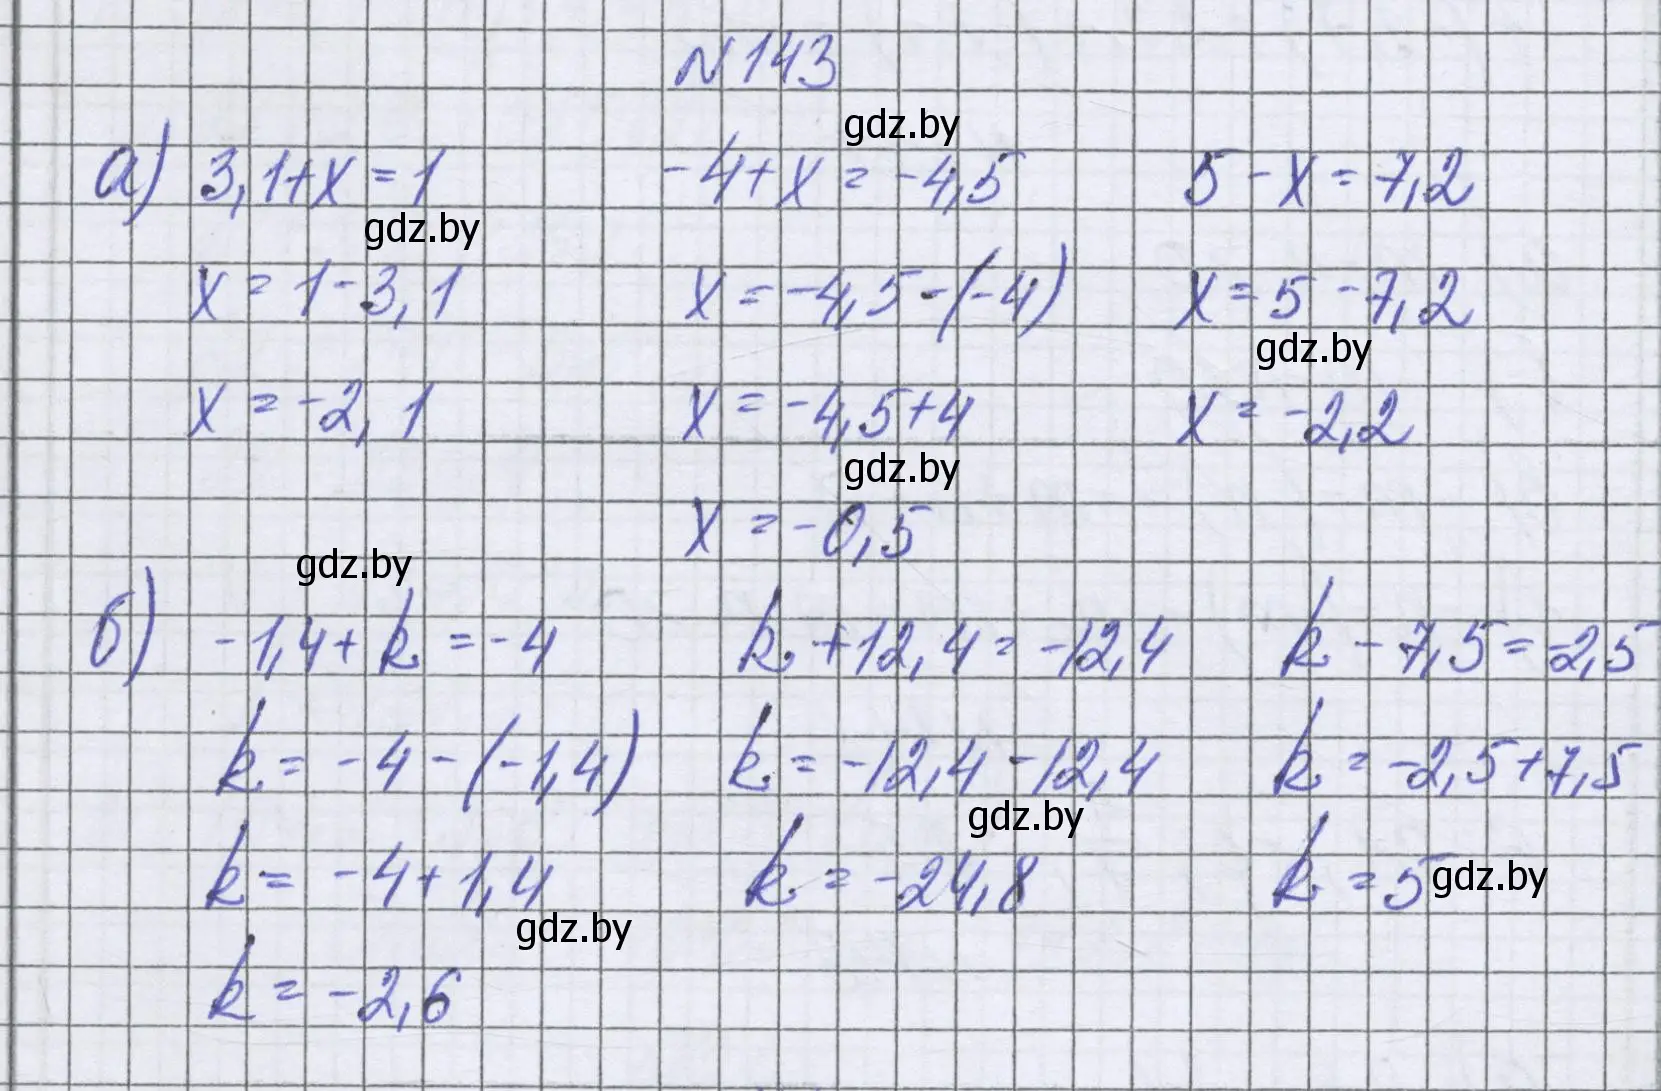 N143
gdz.by
а) 3,1+x=1 -4+x=-4,5 5-x=7,2
gdz.by
x=1-3,1 x=-4,5-(-4) x=5-7,2
gdz.by
x=-2,1 x=-4,5+4 x=-2,2
gdz.by
x=-0,5
gdz.by
б) -1,4+k=-4 k+12,4=-12,4 k-7,5=-2,5
k=-4-(-1,4) k=-12,4-12,4 k=-2,5+7,5
gdz.by
k=-4+1,4 k=-24,8 k=5 gdz.by
gdz.by
k=-2,6